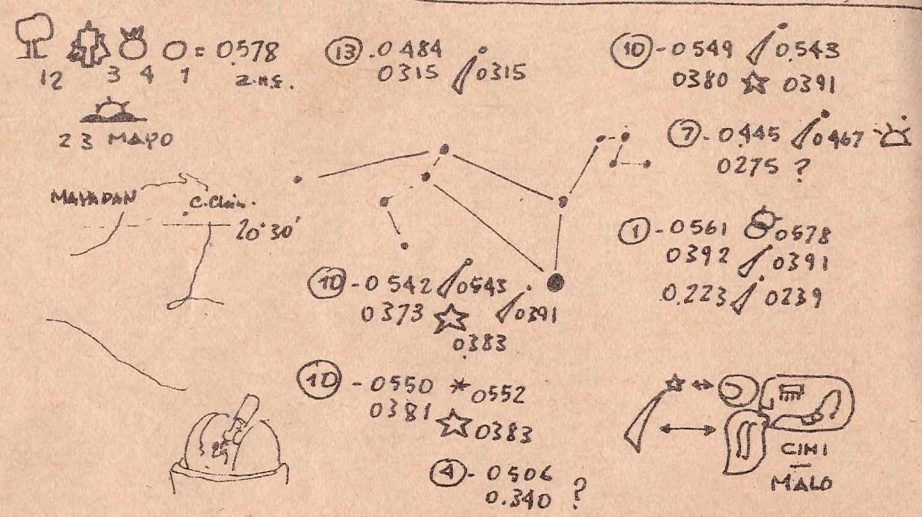 = 0578
12 3 4 1 2.n.s.
23 MAYO
MAYAPAN C. Chin.
20°30'
13 .0484
0315 0315
10 - 0549 0543
0380 0391
7 - 0445 0467
0275 ?
1 - 0561 0578
0392 0391
0.223 0239
10 - 0542 0543
0373 0391
0383
10 - 0550 * 0552
0381 0383
4 - 0506
0.340 ?
CIMI
MALO